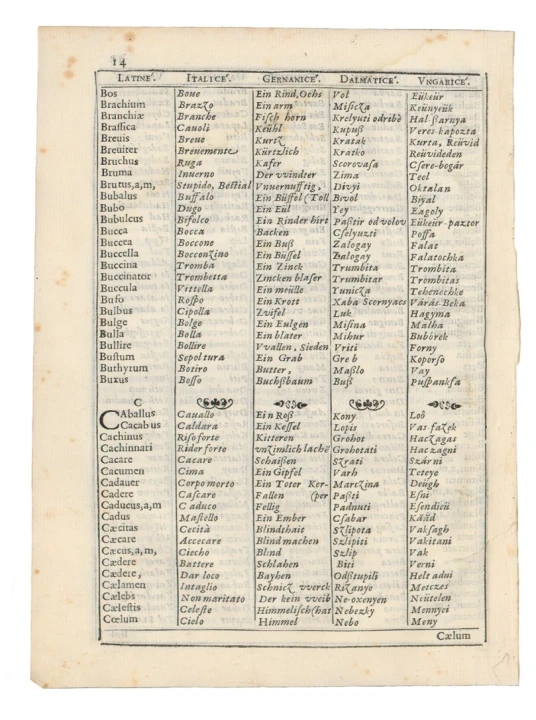 14
LATINE. ITALICE. GERMANICE. DALMATICE. VNGARICE.
Bos Boue Ein Rind, Ochs Vol Eükeür
Brachium Brazzo Ein arm Misicza Keünyeük
Branchiæ Branche Fisch horn Krelyuti odribè Hal-ßarnya
Brassica Cauoli Keühl Kupuß Veres kapozta
Breuis Breue Kurtz Kratak Kurta, Reüvid
Breuiter Breuemente Kürtzlich Kratko Reüvideden
Bruchus Ruga Kafer Scorovasa Csere-bogár
Bruma Inuerno Der vvindter Zima Teel
Brutus,a,m, Stupido, Bestial Vnuernufftig, Divyi Oktalan
Bubalus Buffalo Ein Büffel (Toll Bivol Biyal
Bubo Dugo Ein Eül Yey Eagoly
Bubulcus Bifolco Ein Rinder hirt Paßtir od volov Eükeür-paztor
Bucca Bocca Backen Cselyuzti Possa
Buccea Boccone Ein Buß Zalogay Falat
Buccella Bocconzino Ein Büssel Zalogay Falatochka
Buccina Tromba Ein Zinck Trumbita Trombita
Buccinator Trombetta Zincken blaser Trumbitar Trombitas
Buccula Vittella Ein meülle Yunicza Tehenechke
Bufo Rospo Ein Krott Xaba Scornyacs Várás-Beka
Bulbus Cipolla Zvifel Luk Hagyma
Bulge Bolge Ein Eulgen Misina Malha
Bulla Bolla Ein blater Mihur Bubórek
Bullire Bollire Vvallen, Sieden Vriti Forny
Bustum Sepoltura Ein Grab Greb Koporso
Buthyrum Botiro Butter, Maßlo Vay
Buxus Bosso Buchßbaum Buß Pußpankfa
C
CAballus Cauallo Ein Roß Kony Loô
Cacabus Caldara Ein Kessel Lopis Vas-fazek
Cachinus Risoforte Kitteren Grohot Haczagas
Cachinnari Rider forte vnzimlich lachē Grohotati Haczagni
Cacare Cacare Schaißen Szrati Szárni
Cacumen Cima Ein Gipfel Varh Teteye
Cadauer Corpo morto Ein Toter Ker- Marczina Deügh
Cadere Cascare Fallen (per Paßti Esni
Caducus,a,m Caduco Fellig Padnuti Esendicü
Cadus Mastello Ein Ember Csabar
Cæcitas Cecità Blindthait Szlipota Vaksagh
Cæcare Accecare Blind machen Szlipiti Vakitani
Cæcus,a,m, Ciecho Blind Szlip Vak
Cædere Battere Schlahen Biti Verni
Cædere, Dar loco Bayhen Odßtupiti Helt adni
Cælamen Intaglio Schnicz vverck Rizanye Metczes
Cælebs Non maritato Der kein vveib Ne-oxenyen Neütelen
Cælestis Celeste Himmelisch (hat Nebezky Mennyei
Cœlum Cielo Himmel Nebo Meny
Cælum